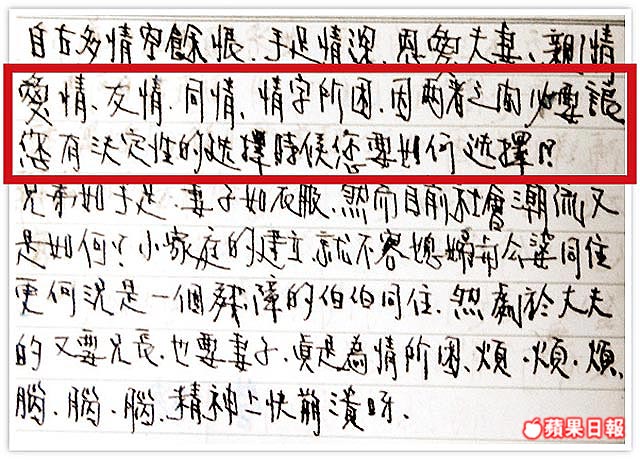 自古多情空餘恨、手足情深、恩愛夫妻、親情
愛情、友情、同情、情字所困、因兩者之間必要讓
您有決定性的选擇時候您要如何选擇!?
兄弟如手足、妻子如衣服、然而目前社會潮流又
是如何?小家庭的建立就不容媳婦和公婆同住
更何況是一個殘障的伯伯同住、然處於丈夫
的又要兄長、也要妻子、真是為情所困、煩、煩、煩、
腦、腦、腦、精神上快崩潰呀、
蘋果日報